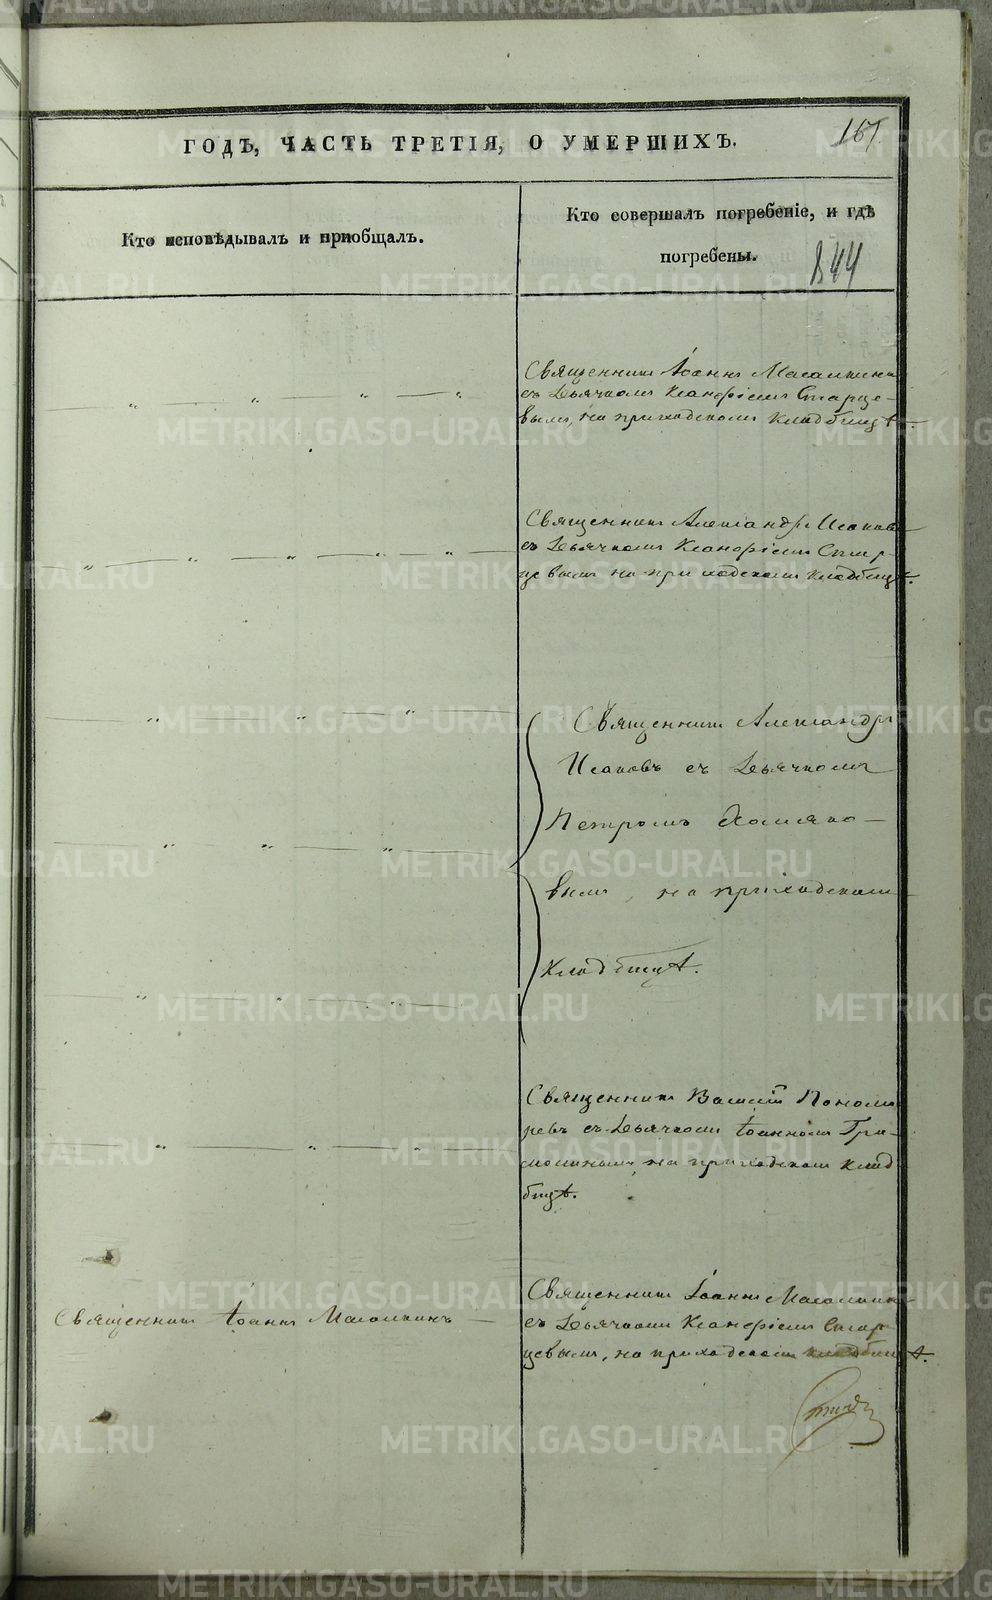 ГОДЪ, ЧАСТЬ ТРЕТІЯ, О УМЕРШИХЪ.
167.
Кто исповѣдывалъ и пріобщалъ.
Кто совершалъ погребеніе, и гдѣ
погребены.
844
Священникъ Іоаннъ
съ Дьячкомъ Ксанфіемъ Старце-
вымъ, на приходскомъ кладбищѣ.
Священникъ Александръ Исаковъ
съ Дьячкомъ Ксанфіемъ Стар-
цевымъ на приходскомъ кладбищѣ.
Священникъ Александръ
Исаковъ съ Дьячкомъ
Петромъ Хомяко-
вымъ, на приходскомъ
кладбищѣ.
Священникъ Василій Понома-
ревъ съ Дьячкомъ Іоанномъ
на приходскомъ клад-
бищѣ.
Священникъ Іоаннъ
Священникъ Іоаннъ
съ Дьячкомъ Ксанфіемъ Стар-
цевымъ, на приходскомъ кладбищѣ.
METRIKI.GASO-URAL.RU